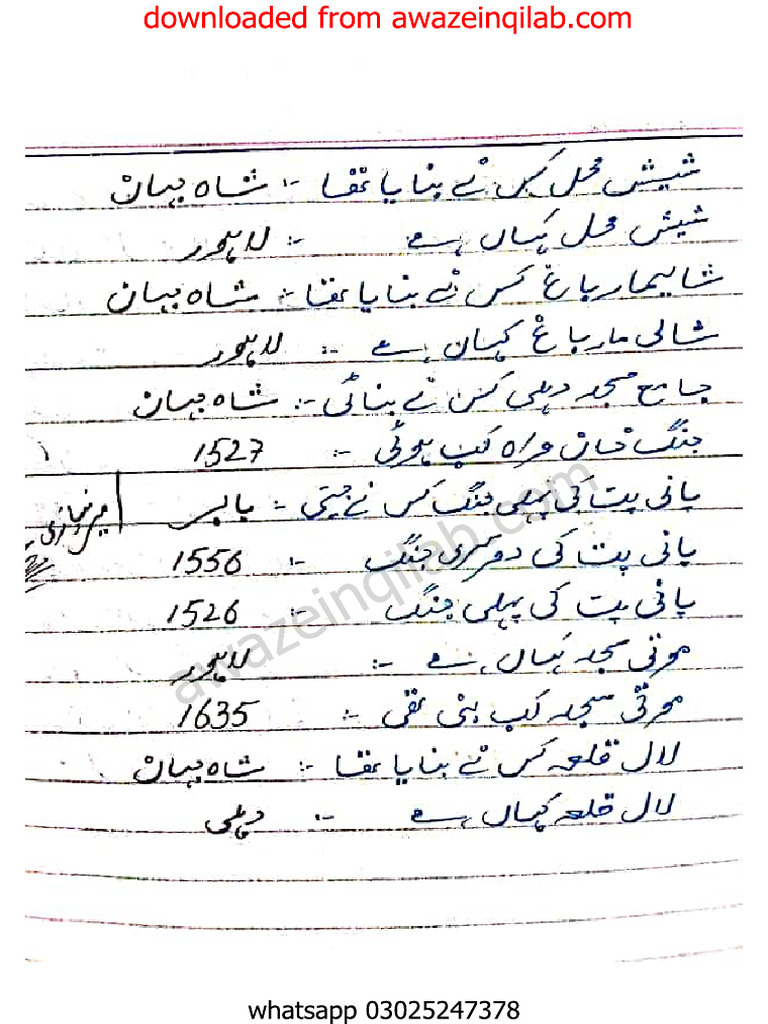 downloaded from awazeinqilab.com
شیش محل کس نے بنایا تھا :- شاہ جہان
شیش محل کہاں ہے :- لاہور
شالیمار باغ کس نے بنایا تھا :- شاہ جہان
شالی مار باغ کہاں ہے :- لاہور
جامع مسجد دہلی کس نے بنائی :- شاہ جہان
جنگ خان وراہ کب ہوئی :- 1527
پانی پت کی پہلی جنگ کس نے جیتی :- بابر
پانی پت کی دوسری جنگ :- 1556
پانی پت کی پہلی جنگ :- 1526
موتی مسجد کہاں ہے :- لاہور
موتی مسجد کب بنی تھی :- 1635
لال قلعہ کس نے بنایا تھا :- شاہ جہان
لال قلعہ کہاں ہے :- دہلی
awazeinqilab.com
whatsapp 03025247378